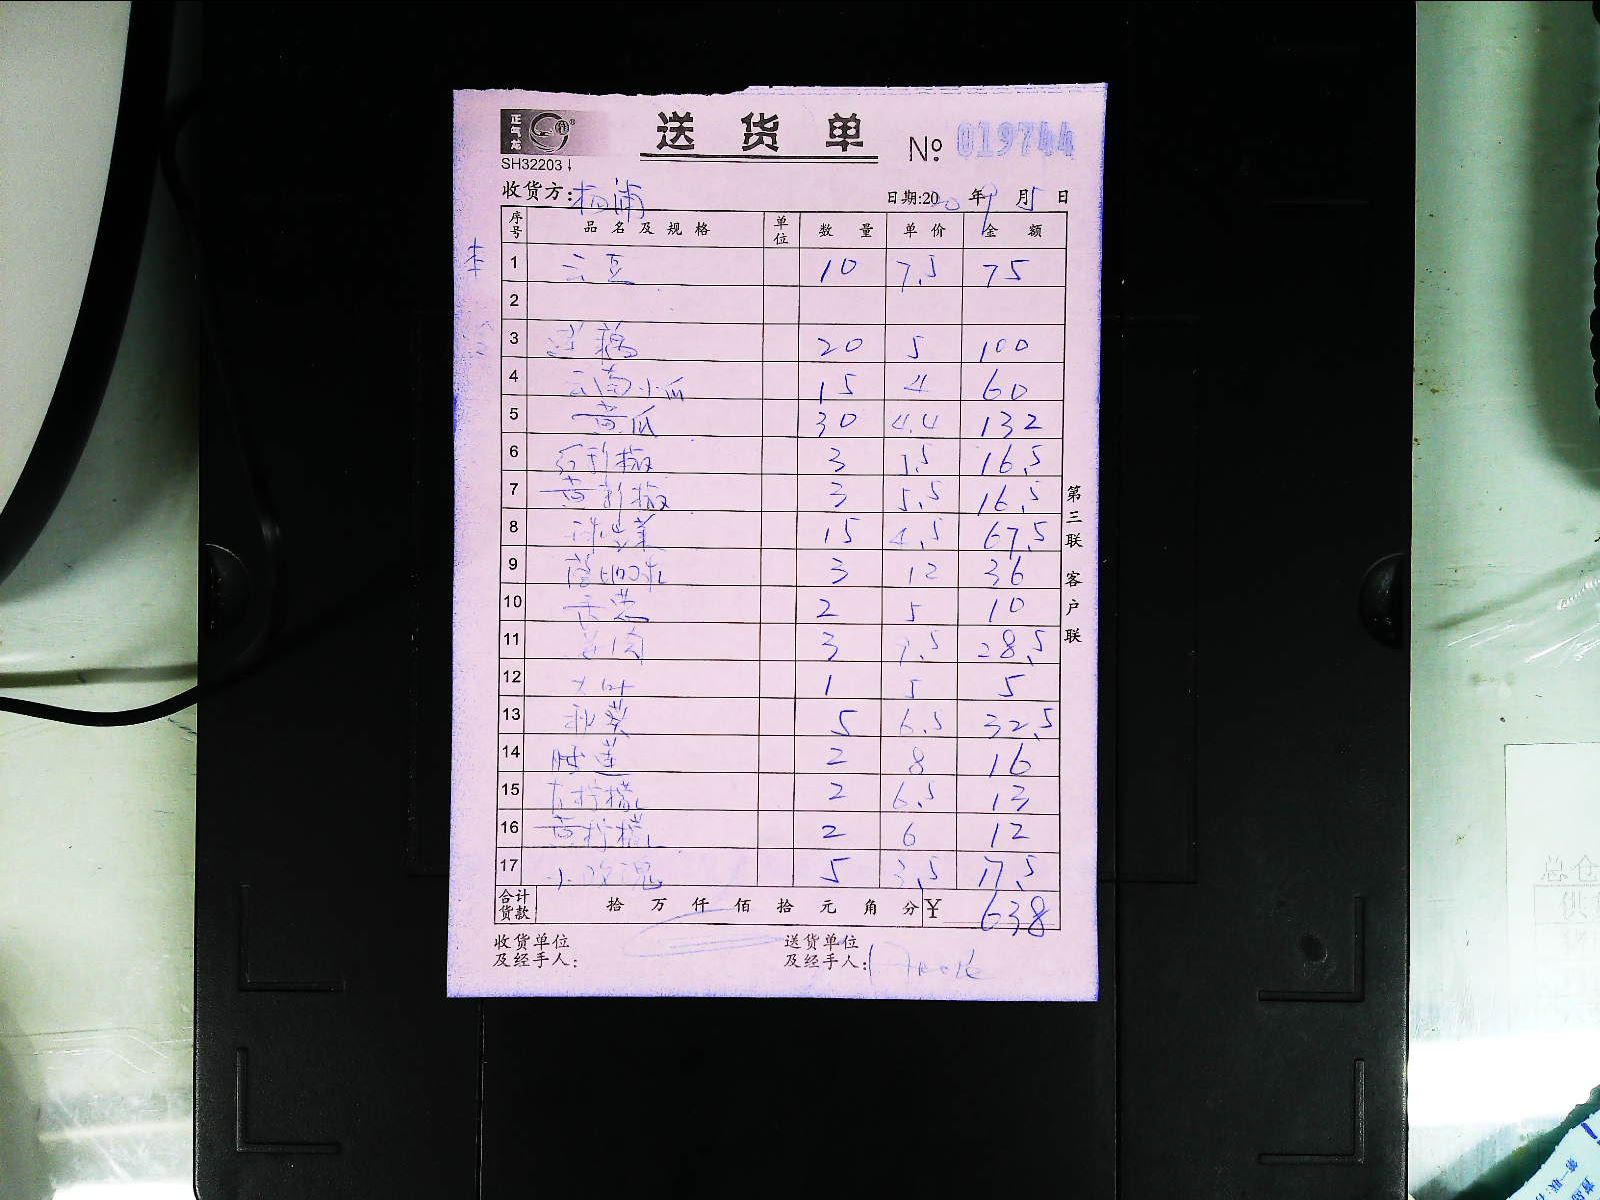 正气龙
送货单 № 019744
SH32203
收货方:杨浦 日期:2020年9月5日
序号 品名及规格 单位 数量 单价 金额
1 云豆 10 7.5 75
2
3 20 5 100
4 云南小瓜 15 4 60
5 黄瓜 30 4.4 132
6 红彩椒 3 5.5 16.5
7 黄彩椒 3 5.5 16.5
8 15 4.5 67.5
9 3 12 36
10 香葱 2 5 10
11 3 9.5 28.5
12 大叶 1 5 5
13 秋葵 5 6.5 32.5
14 2 8 16
15 青柠檬 2 6.5 13
16 黄柠檬 2 6 12
17 小玫瑰 5 3.5 17.5
合计货款 拾 万 仟 佰 拾 元 角 分 ¥ 638
收货单位及经手人: 送货单位及经手人:
第三联 客户联